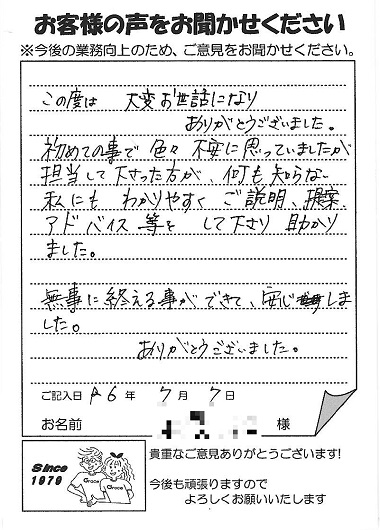 お客様の声をお聞かせください
※今後の業務向上のため、ご意見をお聞かせください。
この度は 大変お世話になり
ありがとうございました。
初めての事で色々不安に思っていましたが
担当して下さった方が、何も知らない
私にもわかりやすくご説明、提案、
アドバイス等をして下さり助かり
ました。
無事に終える事ができて、安心しま
した。
ありがとうございました。
ご記入日 R6年 7月 7日
お名前 様
Since
1979
Grace
Grace
貴重なご意見ありがとうございます!
今後も頑張りますので
よろしくお願いいたします